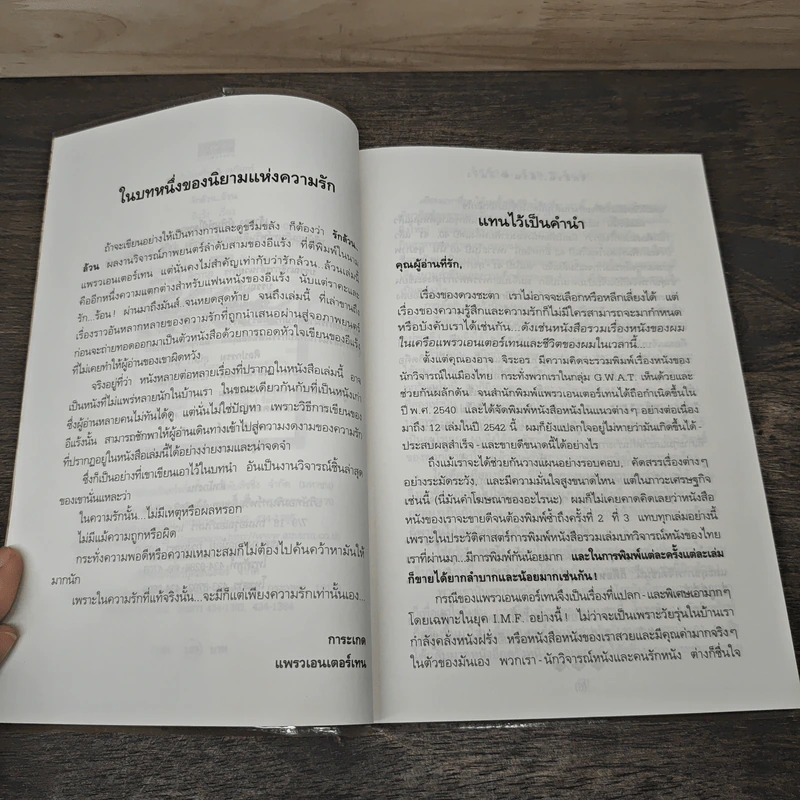 ในบทหนึ่งของนิยามแห่งความรัก
ถ้าจะเขียนอย่างให้เป็นทางการและดูขรึมขลัง ก็ต้องว่า รักล้วน,
ล้วน ผลงานวิจารณ์ภาพยนตร์ลำดับสามของอีแร้ง ที่ตีพิมพ์ในนาม
แพรวเอนเตอร์เทน แต่นั่นคงไม่สำคัญเท่ากับว่ารักล้วน ล้วนเล่มนี้
คืออีกหนึ่งความแตกต่างสำหรับแฟนหนังของอีแร้ง นับแต่ราคะและ
รัก...ร้อน! ผ่านมาถึงมันส์..จนหยดสุดท้าย จนถึงเล่มนี้ ที่เล่าขานถึง
เรื่องราวอันหลากหลายของความรักที่ถูกนำเสนอผ่านสู่จอภาพยนตร์
ก่อนจะถ่ายทอดออกมาเป็นตัวหนังสือด้วยการถอดหัวใจเขียนของอีแร้ง
ที่ไม่เคยทำให้ผู้อ่านของเขาผิดหวัง
จริงอยู่ที่ว่า หนังหลายต่อหลายเรื่องที่ปรากฏในหนังสือเล่มนี้ อาจ
เป็นหนังที่ไม่แพร่หลายนักในบ้านเรา ในขณะเดียวกันกับที่เป็นหนังเก่า
ซึ่งผู้อ่านหลายคนไม่ทันได้ดู แต่นั่นไม่ใช่ปัญหา เพราะวิธีการเขียนของ
อีแร้งนั้น สามารถชักพาให้ผู้อ่านเดินทางเข้าไปสู่ความงดงามของความรัก
ที่ปรากฏอยู่ในหนังสือเล่มนี้ได้อย่างง่ายงามและน่าจดจำ
ซึ่งก็เป็นอย่างที่เขาเขียนเอาไว้ในบทนำ อันเป็นงานวิจารณ์ชิ้นล่าสุด
ของเขานั่นแหละว่า
ในความรักนั้น...ไม่มีเหตุหรือผลหรอก
ไม่มีแม้ความถูกหรือผิด
กระทั่งความพอดีหรือความเหมาะสมก็ไม่ต้องไปค้นคว้าหามันให้
มากนัก
เพราะในความรักที่แท้จริงนั้น...จะมีก็แต่เพียงความรักเท่านั้นเอง...
การะเกด
แพรวเอนเตอร์เทน
แทนไว้เป็นคำนำ
คุณผู้อ่านที่รัก,
เรื่องของดวงชะตา เราไม่อาจจะเลือกหรือหลีกเลี่ยงได้ แต่
เรื่องของความรู้สึกและความรักก็ไม่มีใครสามารถจะมากำหนด
หรือบังคับเราได้เช่นกัน...ดังเช่นหนังสือรวมเรื่องหนังของผม
ในเครือแพรวเอนเตอร์เทนและชีวิตของผมในเวลานี้...
ตั้งแต่คุณองอาจ จิระอร มีความคิดจะรวมพิมพ์เรื่องหนังของ
นักวิจารณ์ในเมืองไทย กระทั่งพวกเราในกลุ่ม G.W.A.T. เห็นด้วยและ
ช่วยกันผลักดัน จนสำนักพิมพ์แพรวเอนเตอร์เทนได้ถือกำเนิดขึ้นใน
ปี พ.ศ. 2540 และได้จัดพิมพ์หนังสือหนังในแนวต่างๆ อย่างต่อเนื่อง
มาถึง 12 เล่มในปี 2542 นี้ ผมก็ยังแปลกใจอยู่ไม่หายว่ามันเกิดขึ้นได้-
ประสบผลสำเร็จ-และขายดีขนาดนี้ได้อย่างไร
ถึงแม้เราจะได้ช่วยกันวางแผนอย่างรอบคอบ, คัดสรรเรื่องต่างๆ
อย่างระมัดระวัง, และมีความมั่นใจสูงขนาดไหน แต่ในภาวะเศรษฐกิจ
เช่นนี้ (นี่มันคำโฆษณาของอะไรนะ) ผมก็ไม่เคยคาดคิดเลยว่าหนังสือ
หนังของเราจะขายดีจนต้องพิมพ์ซ้ำถึงครั้งที่ 2 ที่ 3 แทบทุกเล่มอย่างนี้
เพราะในประวัติศาสตร์การพิมพ์หนังสือรวมเล่มบทวิจารณ์หนังของไทย
เราที่ผ่านมา...มีการพิมพ์กันน้อยมาก และในการพิมพ์แต่ละครั้งแต่ละเล่ม
ก็ขายได้ยากลำบากและน้อยมากเช่นกัน!
กรณีของแพรวเอนเตอร์เทนจึงเป็นเรื่องที่แปลก-และพิเศษเอามากๆ
โดยเฉพาะในยุค I.M.F. อย่างนี้! ไม่ว่าจะเป็นเพราะวัยรุ่นในบ้านเรา
กำลังคลั่งหนังฝรั่ง หรือหนังสือหนังของเราสวยและมีคุณค่ามากจริงๆ
ในตัวของมันเอง พวกเรา-นักวิจารณ์หนังและคนรักหนัง ต่างก็ชื่นใจ